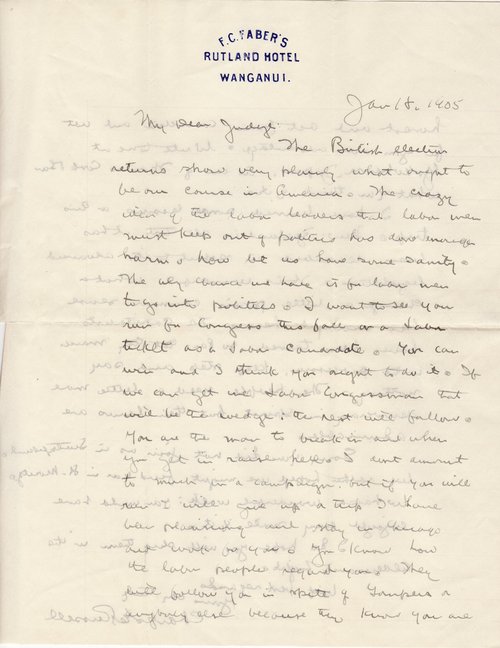 F. C. FABER'S
RUTLAND HOTEL
WANGANUI.
Jan 18, 1905
My Dear Judge:
The British election
returns show very plainly what ought to
be our course in America. The crazy
idea of the labor leaders that labor men
must keep out of politics has done enough
harm. Now let us have some sanity.
The only chance we have is for labor men
to go into politics. I want to see you
run for Congress this fall on a Labor
ticket as a Labor candidate. You can
win and I think you ought to do it. If
we can get one Labor Congressman that
will be the wedge: the rest will follow.
You are the man to break in and when
you get in raise hell. I don't amount
to much in a campaign but if you will
run I will give up a trip I have
been planning and stay in Chicago
and work for you. You know how
the labor people regard you. They
will follow you in spite of Gompers or
anybody else because they know you are